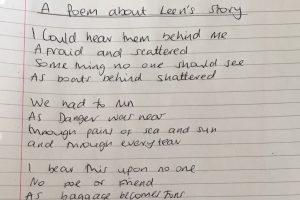 A Poem about Leen's Story
I Could hear them behind me
Afraid and scattered
Something no one should see
As boats behind shattered
We had to run
As Danger was near
through pains of sea and sun
and through every tear
I bear this upon no one
No foe or friend
As baggage becomes tons